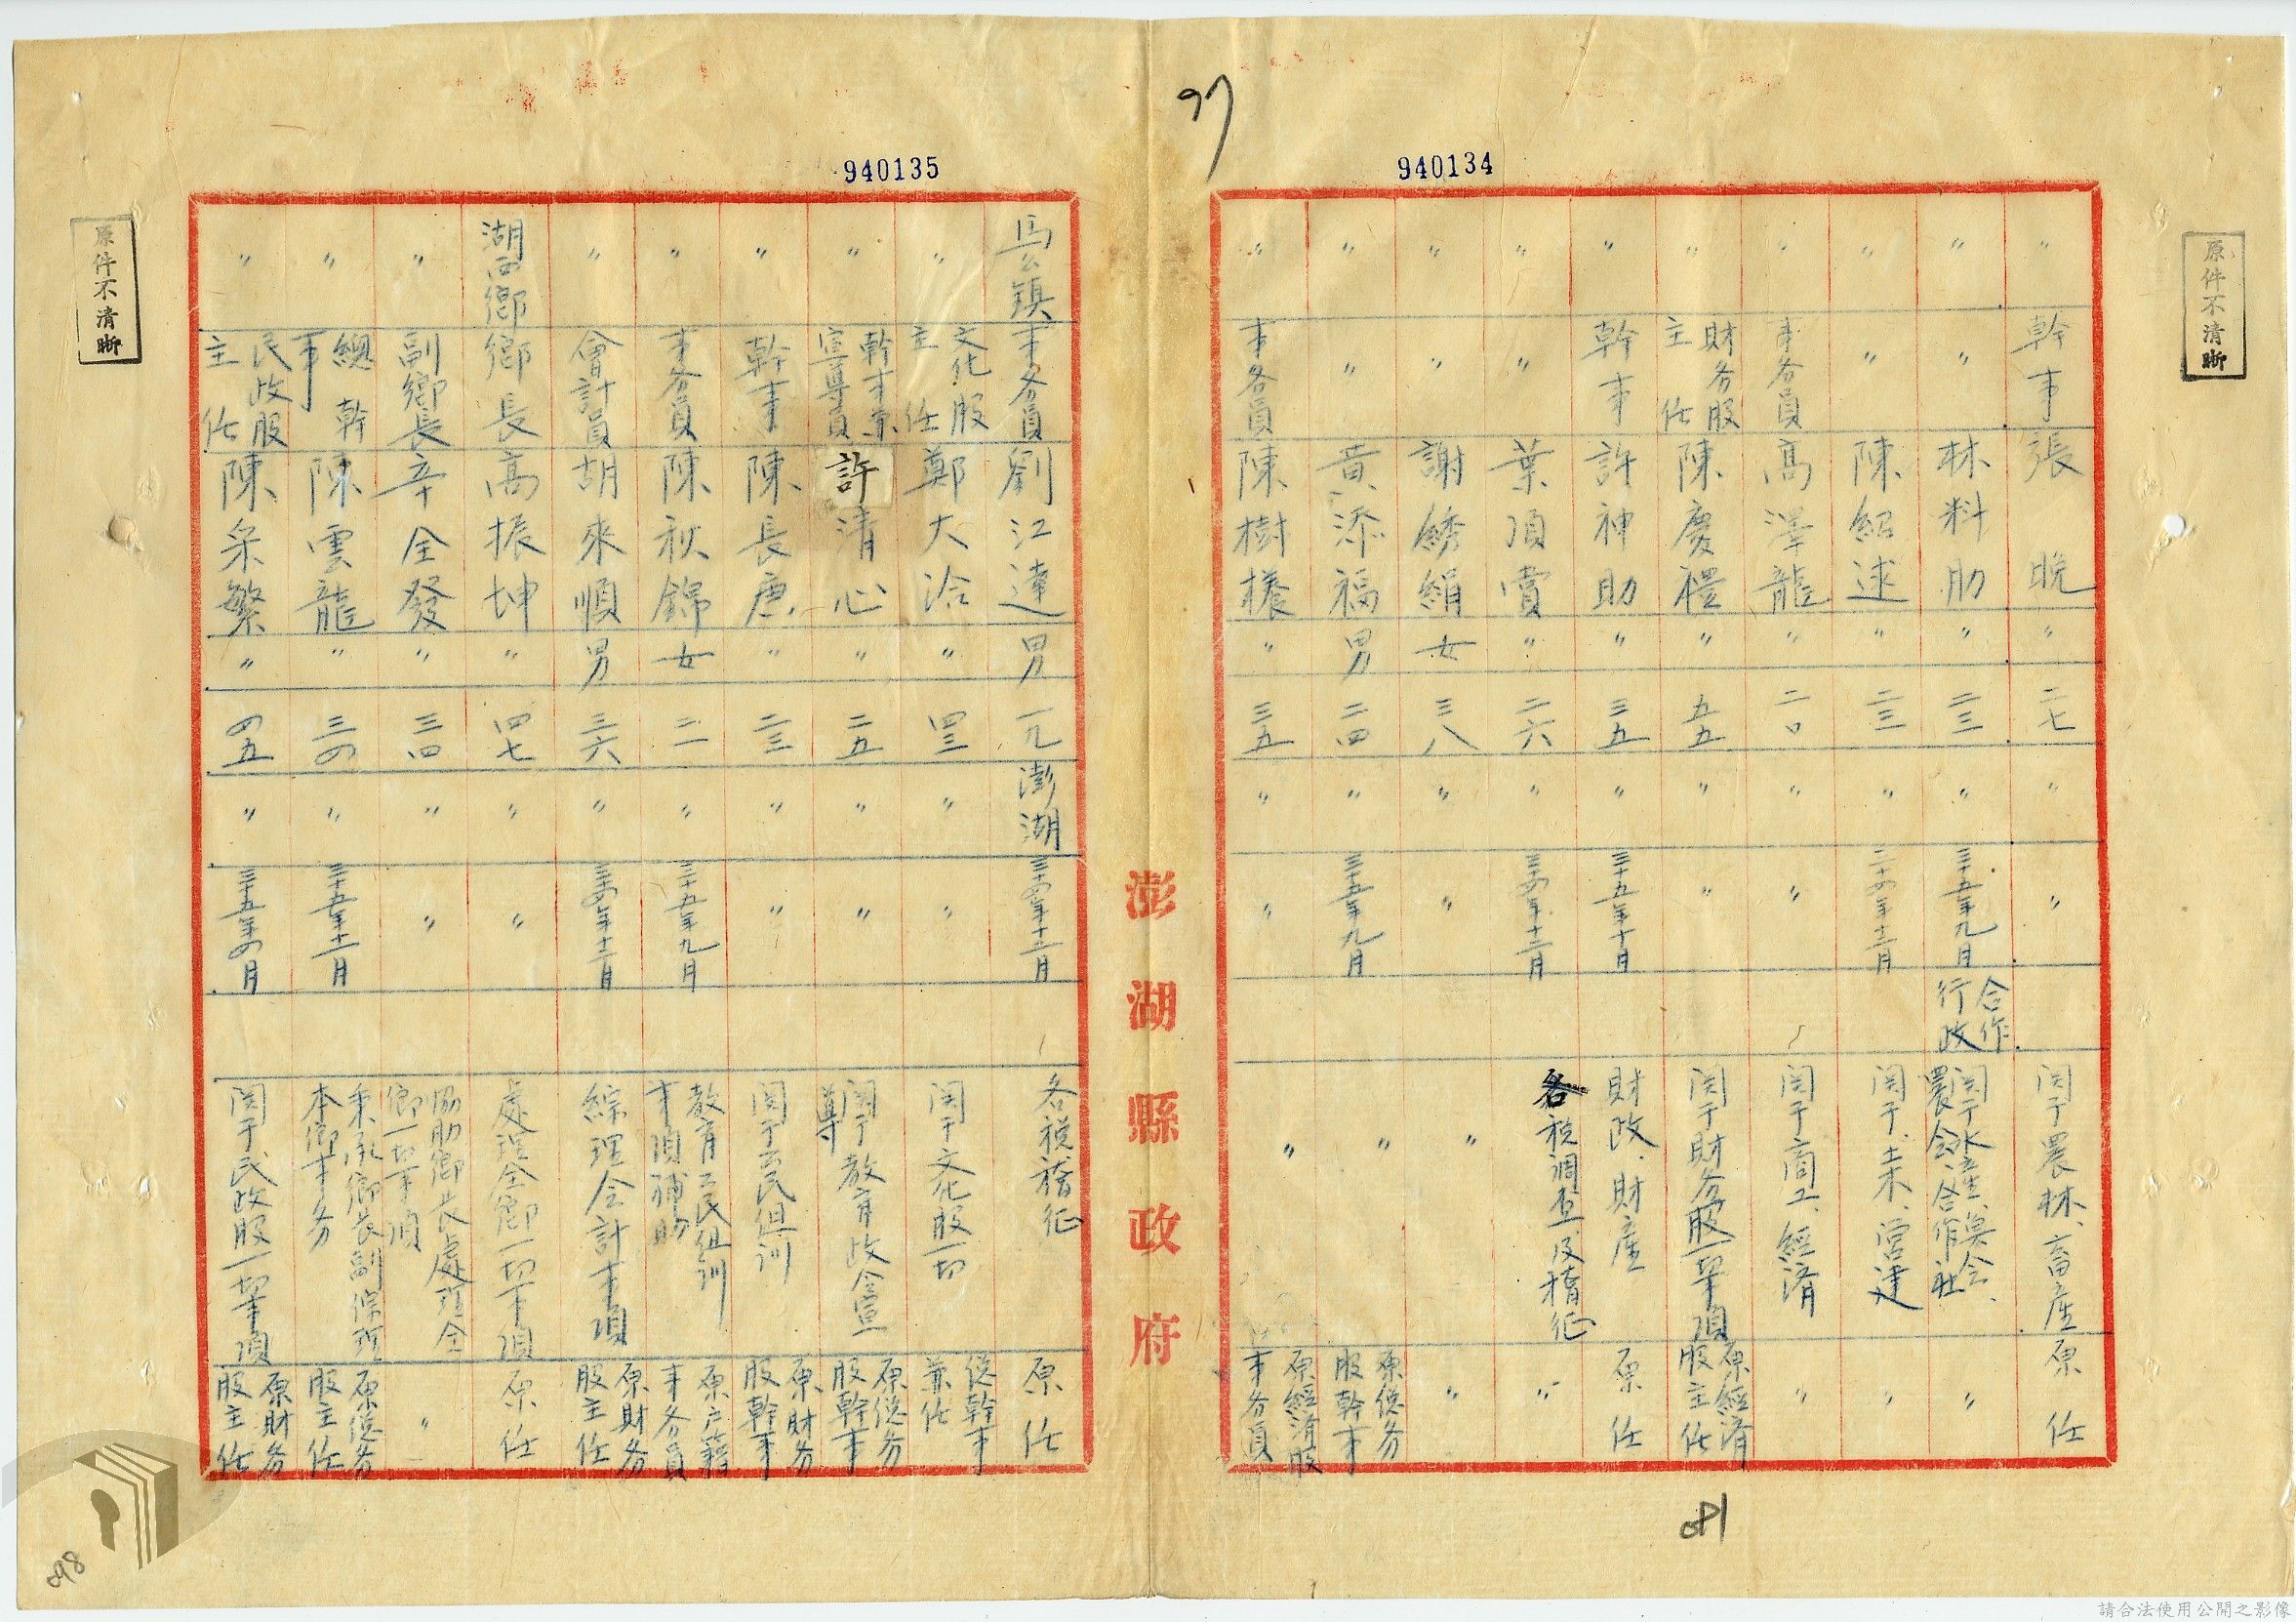 97
940134
原件不清晰
〃 幹事 張晚 〃 二七 〃 〃 関于農林、畜産 原任
〃 〃 林料肋 〃 二三 〃 三十五年九月 合作行政 関于水産、漁会、農会、合作社 〃
〃 〃 陳紹逑 〃 二三 〃 三十四年十二月 関于土木、営建 〃
〃 事务員 高澤龍 〃 二〇 〃 〃 関于商工、經済 〃
〃 財务股主任 陳慶禮 〃 五五 〃 〃 関于財务股一切事項 原經済股主任
〃 幹事 許神助 〃 三五 〃 三十五年十月 財政、財産 原任
〃 〃 葉頂賞 〃 二六 〃 三十四年十二月 各税調查及稽征 〃
〃 〃 謝綉絹 女 三八 〃 〃 〃 〃
〃 〃 黄添福 男 二四 〃 三十五年九月 〃 原总务股幹事
〃 事务員 陳樹樣 〃 三五 〃 〃 〃 原經済股事务員
081
澎湖縣政府
940135
原件不清晰
馬公鎮 事务員 劉江達 男 一九 澎湖 三十四年十二月 各税稽征 原任
〃 文化股主任 鄭大洽 〃 四三 〃 〃 関于文化股一切 总幹事兼任
〃 幹事兼宣導員 許清心 〃 二五 〃 〃 関于教育政令宣導 原总务股幹事
〃 幹事 陳長庚 〃 二三 〃 〃 関于公民組训 原財务股幹事
〃 事务員 陳秋錦 女 二一 〃 三十五年九月 教育公民组训事項補助 原户籍事务員
〃 會計員 胡來順 男 三六 〃 三十四年十二月 綜理会計事項 原財务股主任
湖西鄉 鄉長 高振坤 〃 四七 〃 〃 處理全鄉一切事項 原任
〃 副鄉長 辛全發 〃 三四 〃 〃 協助鄉長處理全鄉一切事項 〃
〃 總幹事 陳雲龍 〃 三四 〃 三十五年十一月 秉承鄉長副綜理本鄉事务 原总务股主任
〃 民政股主任 陳繁 〃 四五 〃 三十五年四月 関于民政股一切事項 原財务股主任
098
請合法使用公開之影像